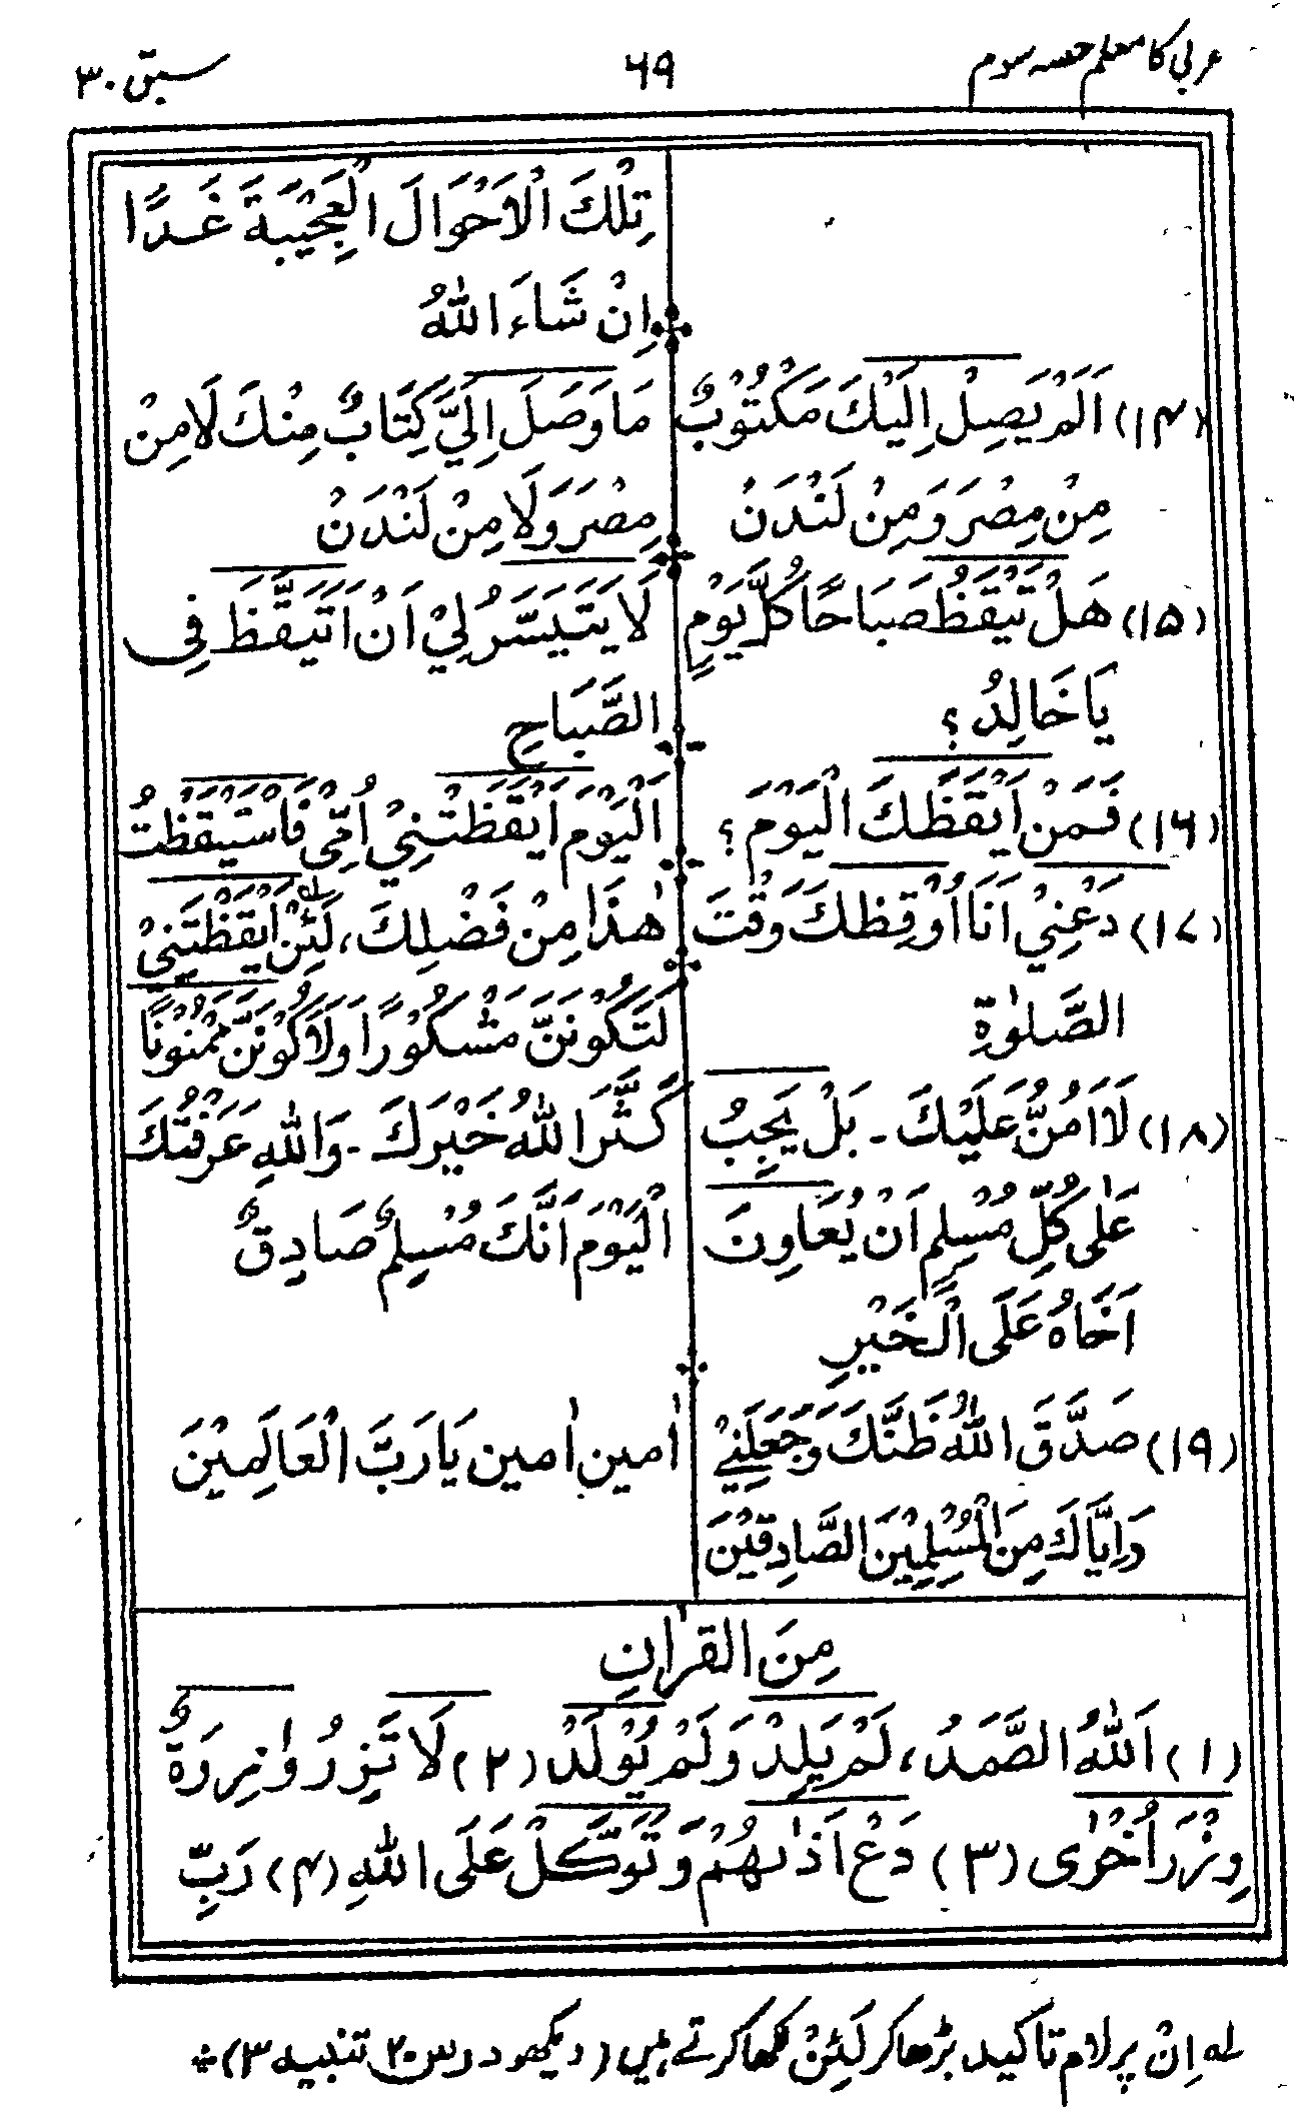 عربی کا معلم حصہ سوم ۶۹ سبق ۳۰
تِلْكَ الْاَحْوَالَ الْعَجِيْبَةَ غَدًا
اِنْ شَاءَ اللّٰهُ
(۱۴) اَلَمْ يَصِلْ اِلَيْكَ مَكْتُوْبٌ
مِنْ مِصْرَ وَمِنْ لَنْدَنْ
مَا وَصَلَ اِلَيَّ كِتَابٌ مِنْكَ لَا مِنْ
مِصْرَ وَلَا مِنْ لَنْدَنْ
(۱۵) هَلْ تَيْقَظُ صَبَاحًا كُلَّ يَوْمٍ
يَا خَالِدُ؟
لَا يَتَيَسَّرُ لِيْ اَنْ اَتَيَقَّظَ فِى
الصَّبَاحِ
(۱۶) فَمَنْ اَيْقَظَكَ الْيَوْمَ؟
اَلْيَوْمَ اَيْقَظَتْنِيْ اُمِّى فَاسْتَيْقَظْتُ
(۱۷) دَعْنِيْ اَنَا اُوْقِظُكَ وَقْتَ
الصَّلٰوةِ
هٰذَا مِنْ فَضْلِكَ، لَئِنْ لہ اَيْقَظْتَنِيْ
لَتَكُوْنَنَّ مَشْكُوْرًا وَلَاَكُوْنَنَّ مَمْنُوْنًا
(۱۸) لَا اَمُنُّ عَلَيْكَ - بَلْ يَجِبُ
عَلٰى كُلِّ مُسْلِمٍ اَنْ يُعَاوِنَ
اَخَاهُ عَلَى الْخَيْرِ
كَثَّرَ اللّٰهُ خَيْرَكَ - وَاللّٰهِ عَرَفْتُكَ
الْيَوْمَ اَنَّكَ مُسْلِمٌ صَادِقٌ
(۱۹) صَدَّقَ اللّٰهُ ظَنَّكَ وَجَعَلَنِيْ
وَاِيَّاكَ مِنَ الْمُسْلِمِيْنَ الصَّادِقِيْنَ
اٰمين اٰمين يَا رَبَّ الْعَالَمِيْنَ
مِنَ القراٰنِ
(۱) اَللّٰهُ الصَّمَدُ، لَمْ يَلِدْ وَلَمْ يُوْلَدْ (۲) لَا تَزِرُ وَازِرَةٌ
وِزْرَ اُخْرٰى (۳) دَعْ اَذٰىهُمْ وَتَوَكَّلْ عَلَى اللّٰهِ (۴) رَبِّ
لہ اِنْ پر لام تاکید بڑھا کر لَئِنْ لکھا کرتے ہیں (دیکھو درس ۲۰ تنبیہ ۳)